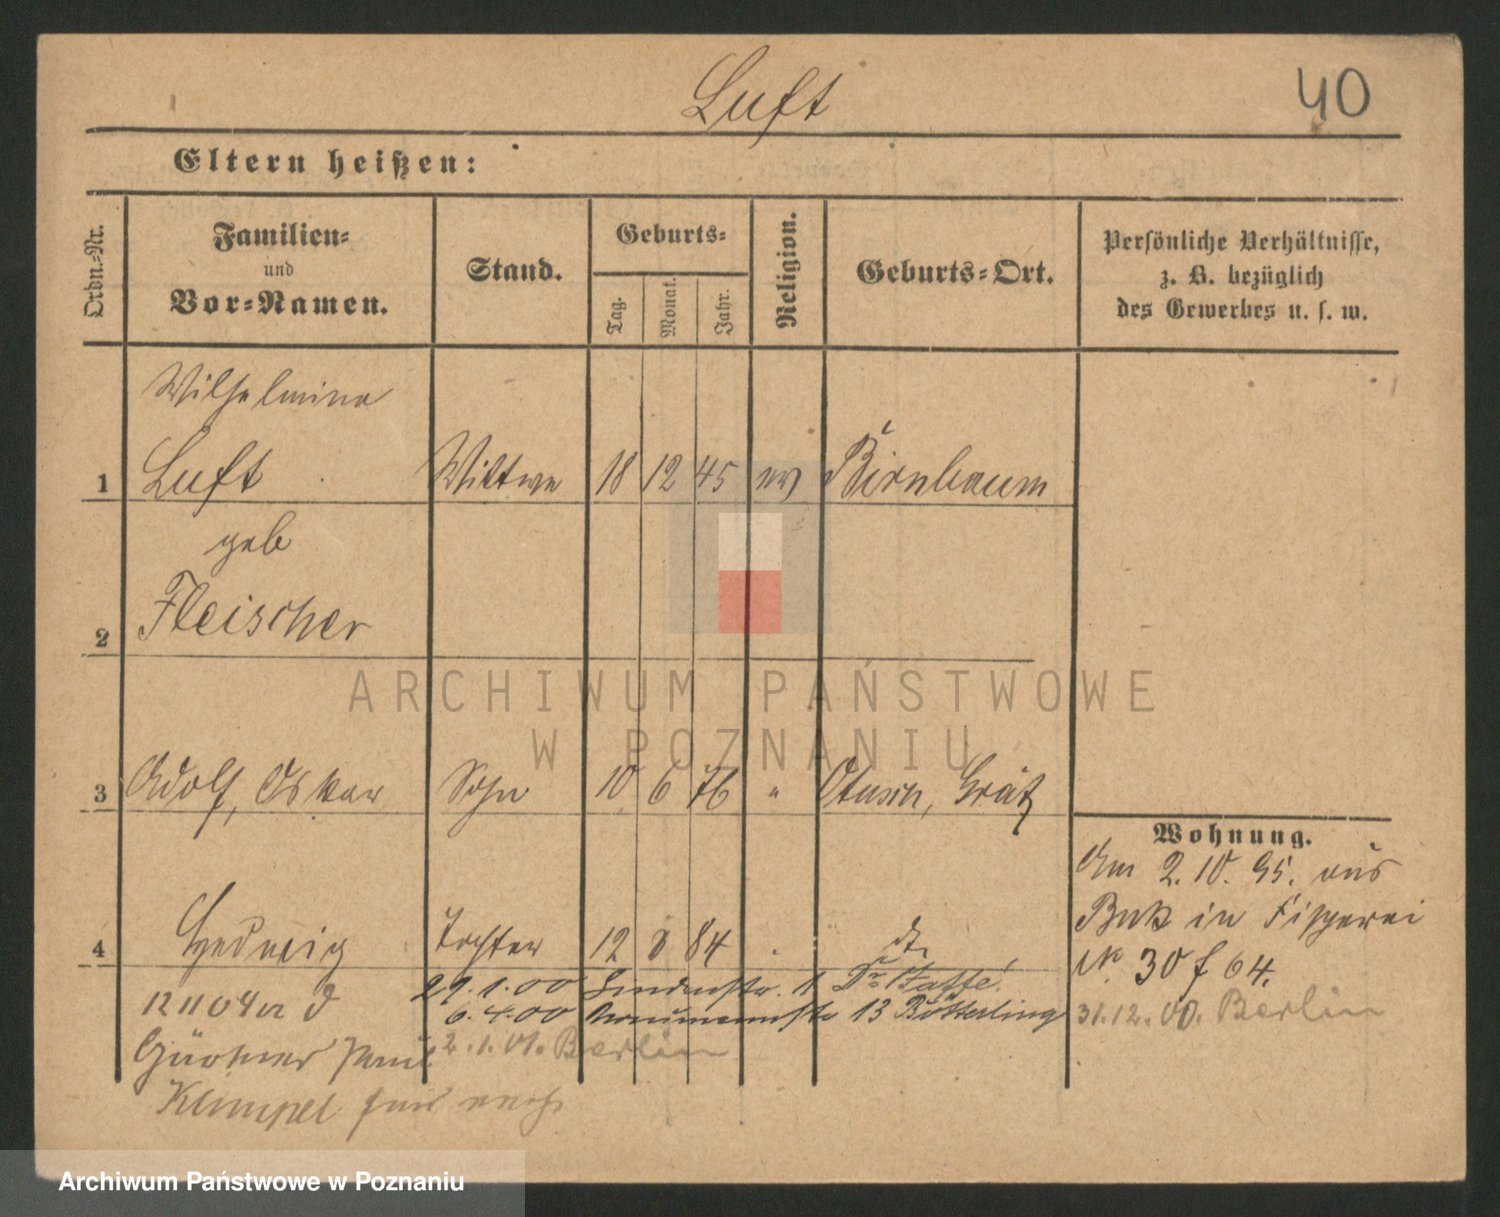 Luft
40
Eltern heißen:
Ordn.-Nr.
Familien-
und
Vor-Namen.
Stand.
Geburts-
Tag.
Monat.
Jahr.
Religion.
Geburts-Ort.
Persönliche Verhältnisse,
z. B. bezüglich
des Gewerbes u. s. w.
Wilhelmine
1 Luft Wittwe 18 12 45 ev Birnbaum
geb
2 Fleischer
ARCHIWUM PAŃSTWOWE
W POZNANIU
3 Adolf, Oskar Sohn 10 6 76 " Otusch, Grätz
Wohnung.
Am 2. 10. 95. aus
Buk in Fischerei
No 30 f 64.
31.12.00. Berlin
4 Hedwig Tochter 12 8 84 dto
29.1.00 Lindenstr. 1 Dr Jaffé.
6.4.00 Naumannstr 13 Bötterling
2.1.01. Berlin
12 11 04
Gärtner Paul
Klimpel
Archiwum Państwowe w Poznaniu